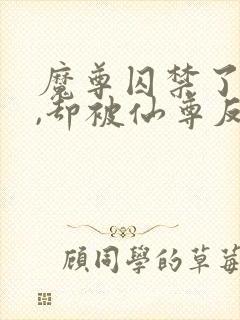 魔尊囚禁了
,却被仙尊反
顧同學的草莓